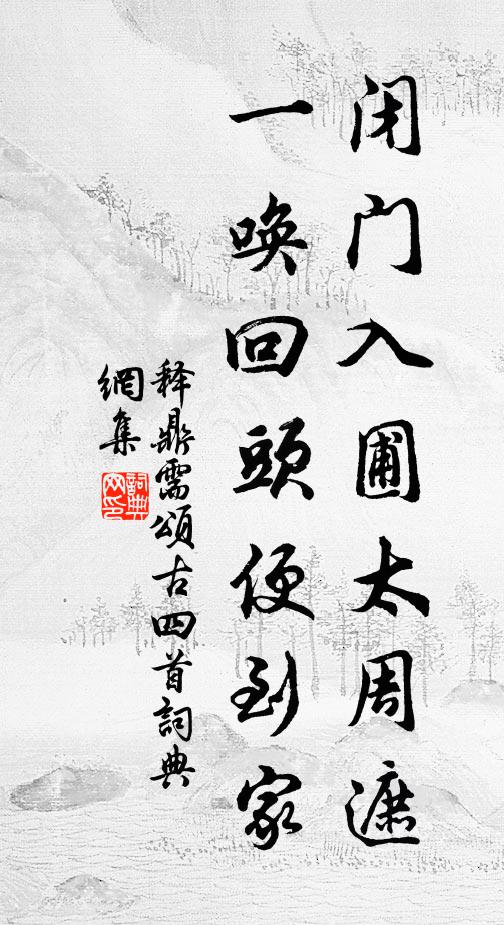 闭门入圃太周遮
一唤回頭便到家
释鼎需頌古四首詞典
網集
詞典
网印